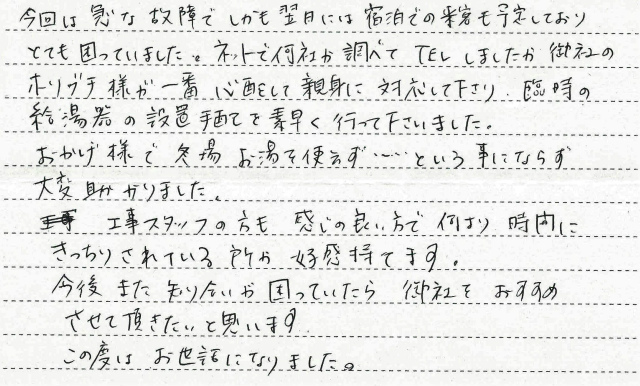 今回は急な故障でしかも翌日には宿泊での来客も予定しており
とても困っていました。ネットで何社か調べてTELしましたが御社の
ホリブチ様が一番心配をして親身に対応して下さり、臨時の
給湯器の設置手配てを素早く行って下さいました。
おかげ様で冬場お湯を使えず……という事にならず
大変助かりました。
工事スタッフの方も感じの良い方で何より時間に
きっちりされている所が好感持てます。
今後また知り合いが困っていたら御社をおすすめ
させて頂きたいと思います
この度はお世話になりました。